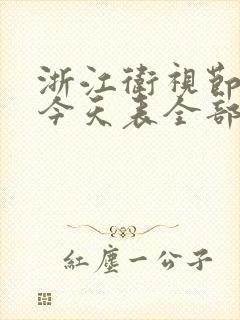 浙江衛視節
今天表全部
紅塵一公子